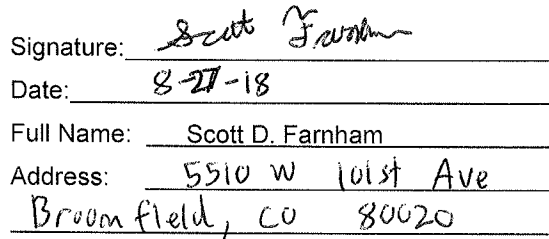 Signature: Scott Farnham
Date: 8-27-18
Full Name: Scott D. Farnham
Address: 5510 W 101st Ave
Broomfield, CO 80020